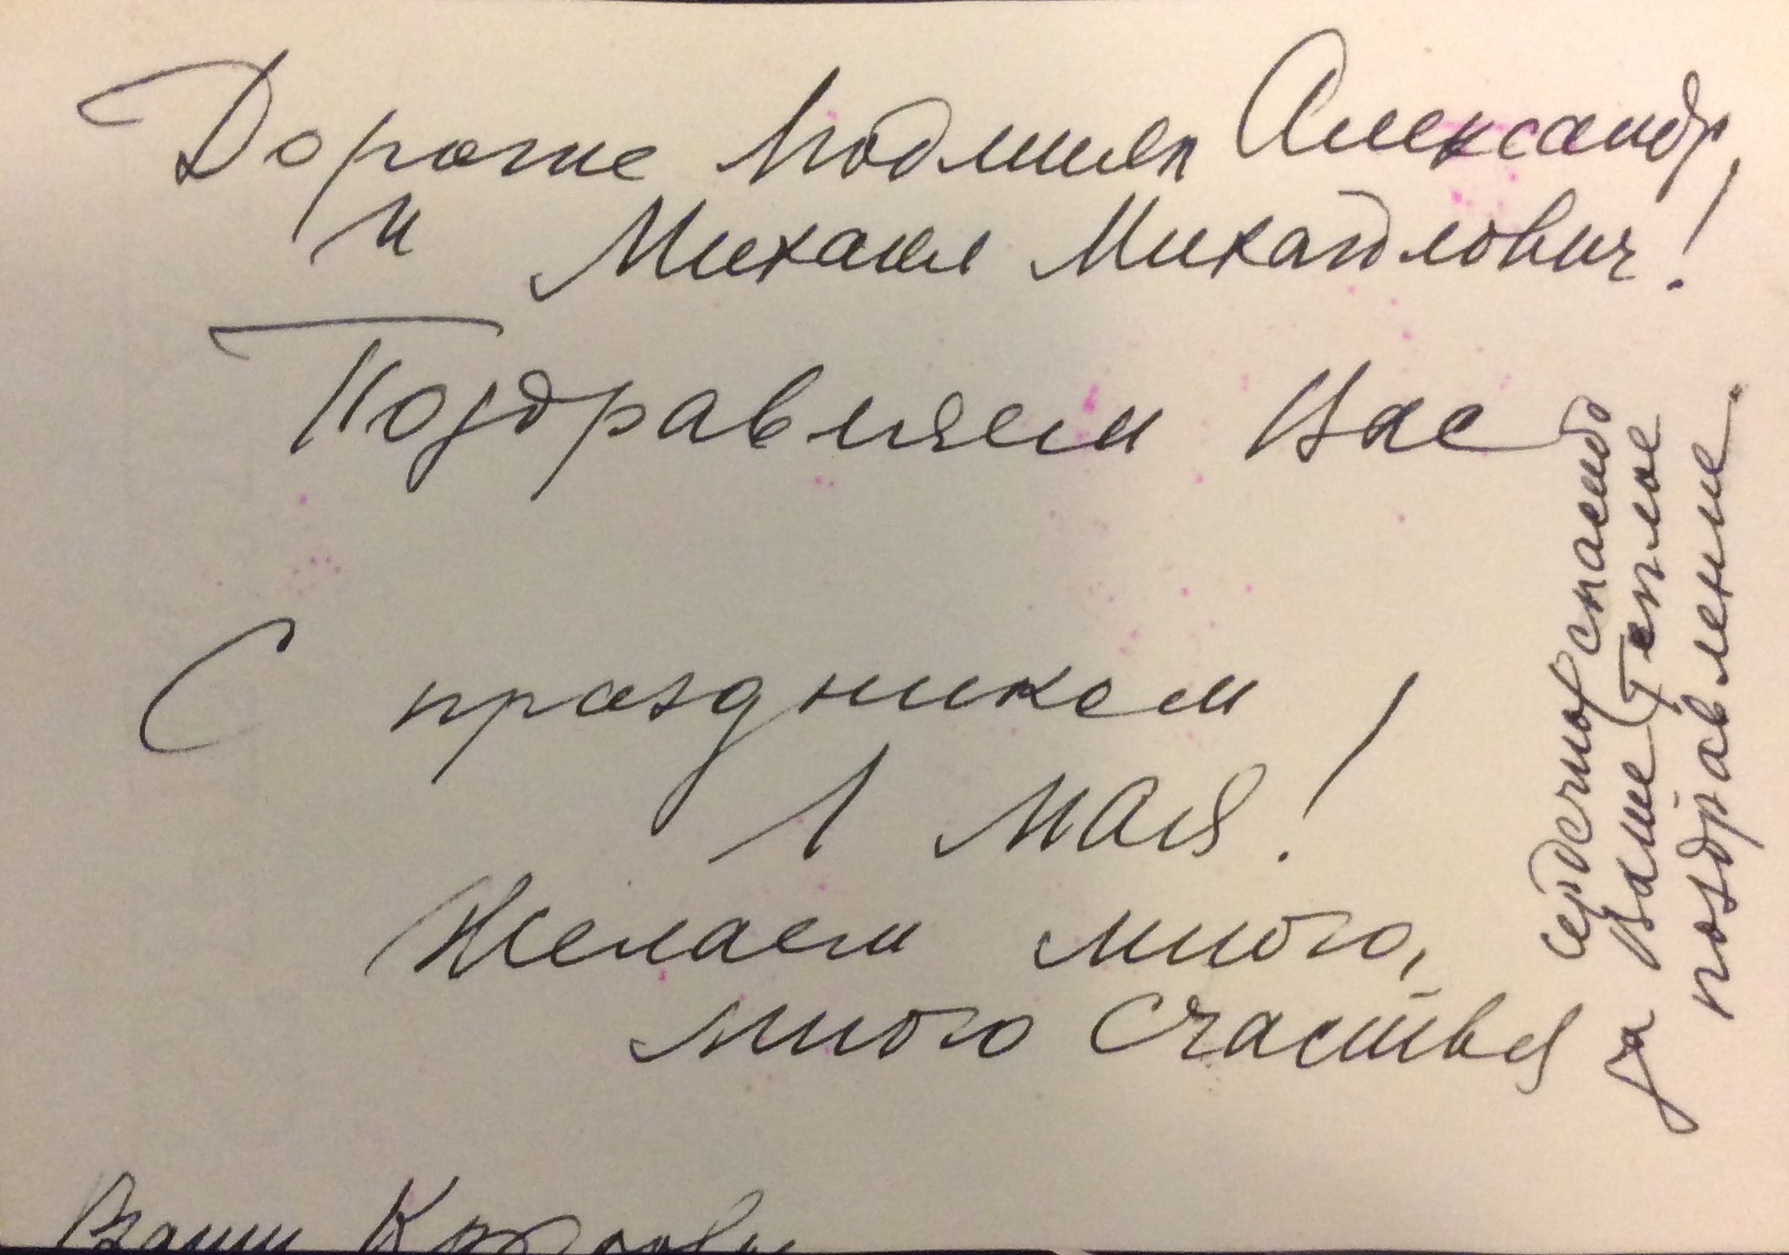 Дорогие Людмила Александр.
и Михаил Михайлович!
Поздравляем Вас
С праздником
1 мая!
Желаем много,
много счастья
Сердечное спасибо
за Ваше теплое
поздравление.
Ваши